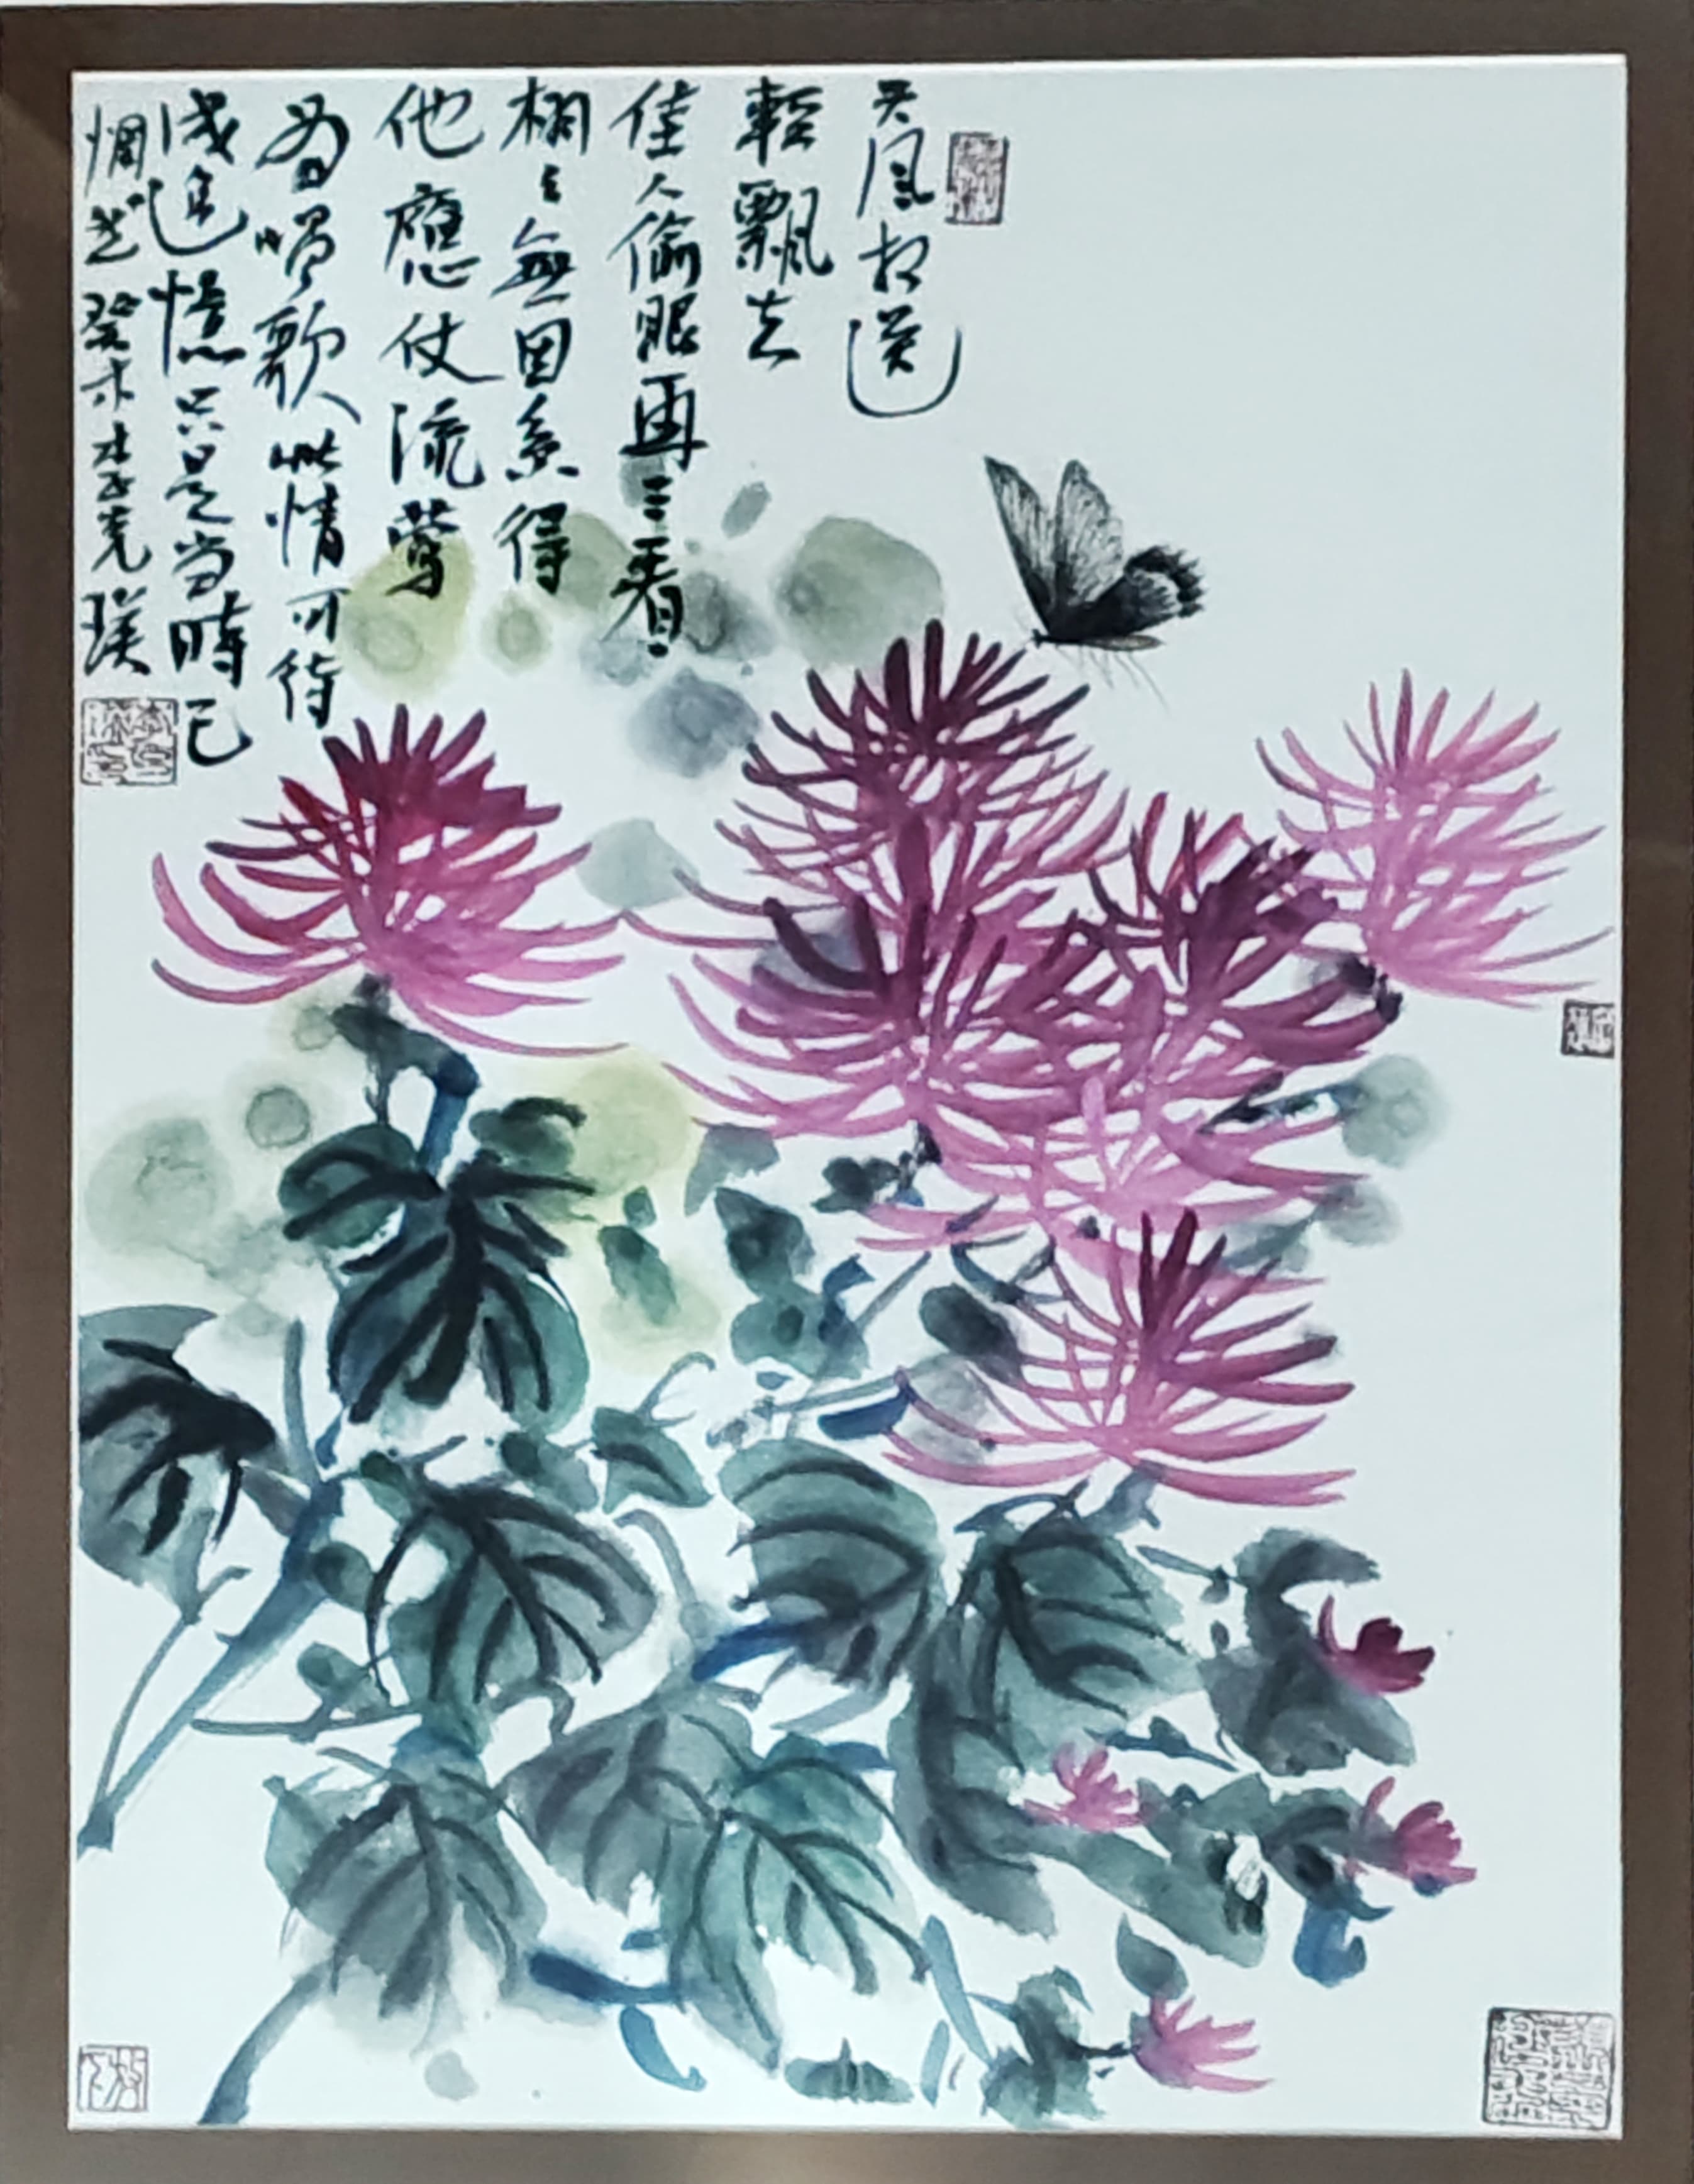 天風相送
輕飄去
佳人偷眼再三看
栩々無因系得
他應仗流鶯
為唱歌此情可待
成追憶只是當時已
惘然癸未李克